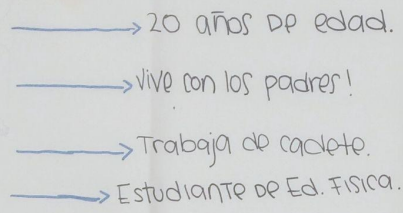 20 años De edad.
vive con los padres!
Trabaja de cadete.
Estudiante De Ed. Fisica.